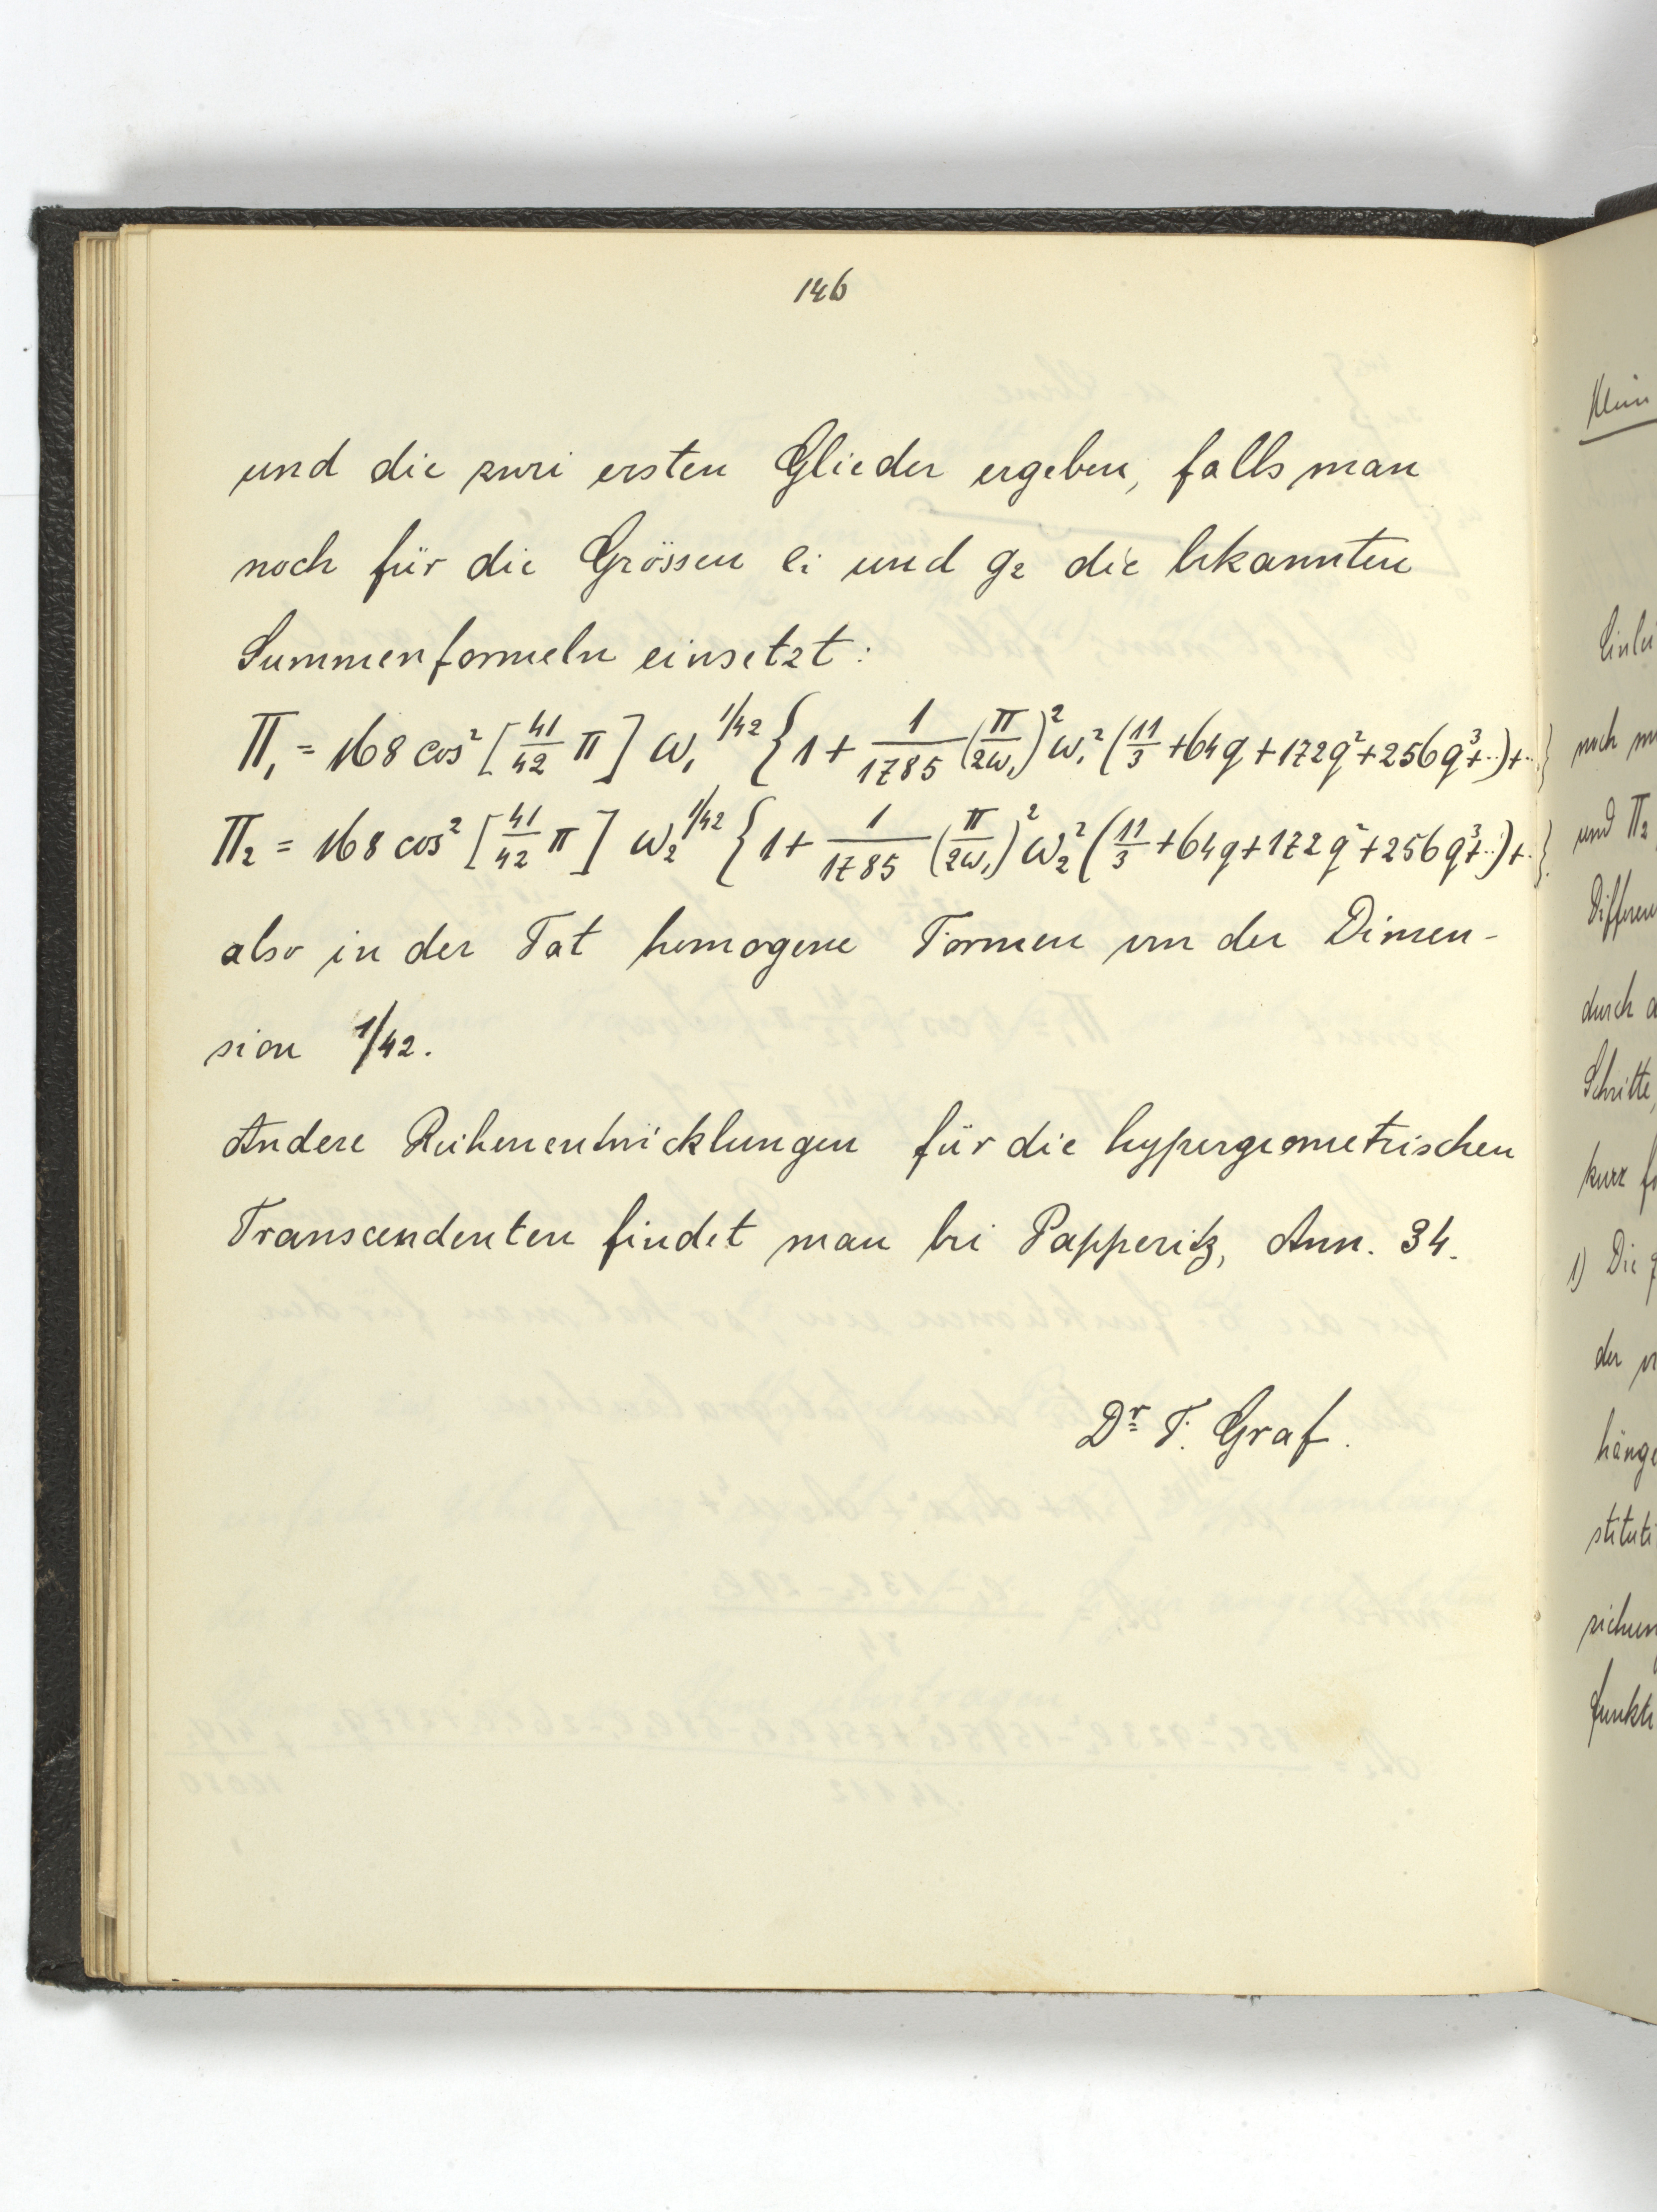 146
und die zwei ersten Glieder ergeben, falls man
noch für die Grössen ei und g₂ die bekannten
Summenformeln einsetzt:
Π₁ = 168 cos² [41/42 π] ω₁^1/42 {1 + 1/1785 (π/2ω₁)² ω₁² (11/3 + 64q + 172q² + 256q³ + ..) + ..}
Π₂ = 168 cos² [41/42 π] ω₂^1/42 {1 + 1/1785 (π/2ω₁)² ω₂² (11/3 + 64q + 172q² + 256q³ + ..) + ..}
also in der Tat homogene Formen von der Dimen-
sion 1/42.
Andere Reihenentwicklungen für die hypergeometrischen
Transcendenten findet man bei Papperitz, Ann. 34.
Dr F. Graf.
Klein
Einlei
noch
und Π₂
Differen
durch
Schritte,
kurz
1) Die
der
hänge
stituti
ziehun
funkti